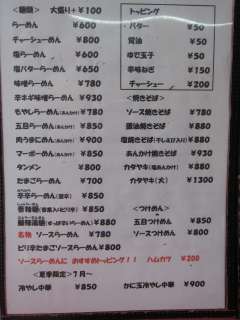 <麺類> 大盛り+ ¥100
らーめん ¥600
チャーシューめん ¥800
塩らーめん ¥600
塩バターらーめん ¥650
味噌らーめん ¥780
辛ネギ味噌らーめん ¥930
もやしらーめん(あんかけ) ¥780
五目らーめん(あんかけ) ¥850
肉うまにめん(あんかけ) ¥900
マーボーめん(あんかけ) ¥850
タンメン ¥800
たまごらーめん ¥700
¥850
¥850
¥850
名物 ソースらーめん ¥780
ピリ辛たまごソースらーめん ¥800
ソースらーめんに おすすめトッピング!! ハムカツ ¥200
<夏季限定> 7月~
冷やし中華 ¥850
トッピング
バター ¥50
背油 ¥50
ゆで玉子 ¥50
辛味ねぎ ¥150
チャーシュー ¥200
<焼きそば>
ソース焼きそば ¥780
醤油焼きそば ¥780
塩焼きそば ¥880
あんかけ焼きそば ¥880
カタヤキ(あんかけ) ¥880
カタヤキ(大) ¥1300
<つけめん>
五目つけめん ¥850
ソースつけめん ¥800
かに玉冷やし中華 ¥900